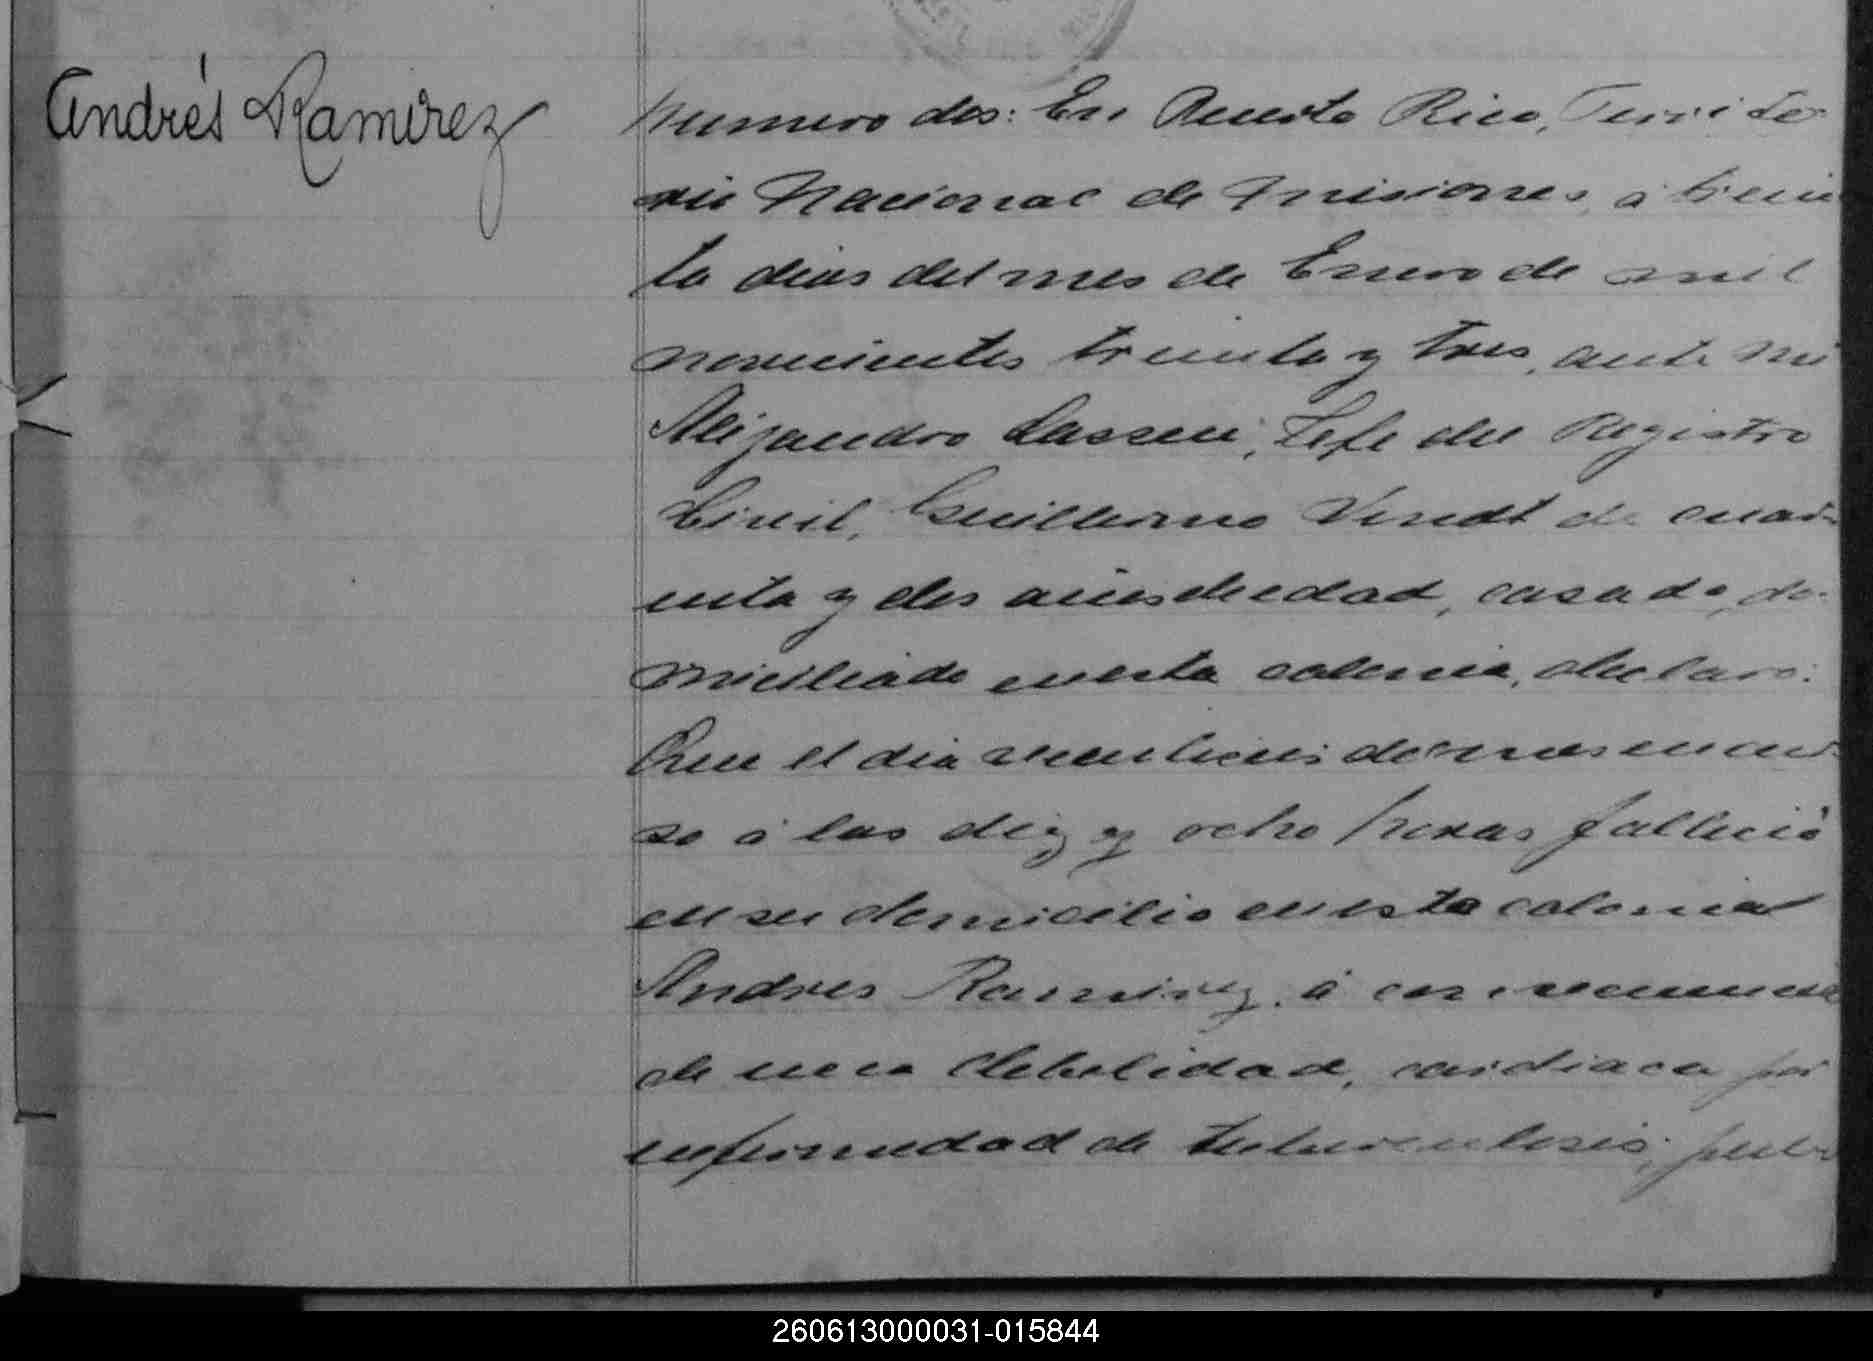 Andrés Ramirez
Numero dos: En Puerto Rico, Territo-
rio Nacional de Misiones, á trein
ta dias del mes de Enero de mil
novecientos treinta y tres, ante mi
Alejandro Lassen, Jefe del Registro
Civil, Guillermo Vendt de cuar
enta y dos años de edad, casado, do-
miciliado en esta colonia, declaro:
Que el dia del mes en cur
so á las diez y ocho horas falleció
en su domicilio en esta colonia
Andres Ramirez, á consecuencia
de una debelidad, cardiaca por
enfermedad de tuberculosis,
260613000031-015844